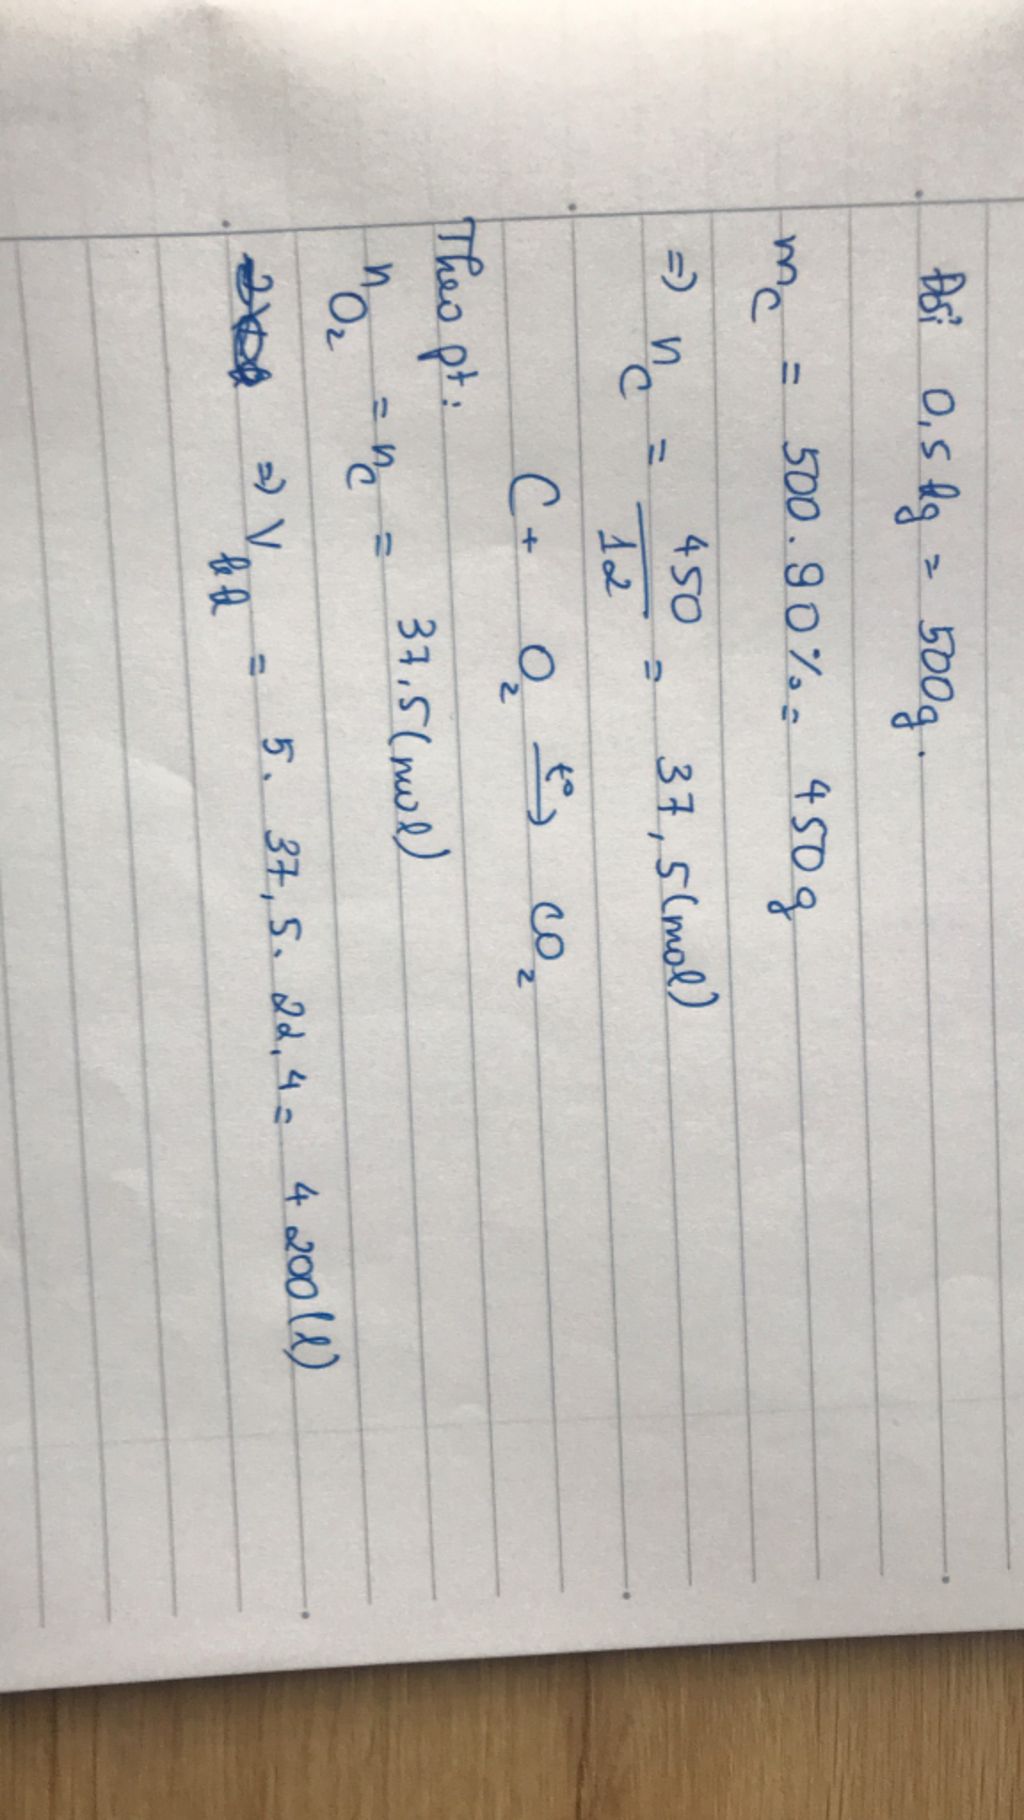 Đổi 0,5 kg = 500g.
m_C = 500 . 90% = 450g
=> n_C = 450/12 = 37,5 (mol)
C + O₂ t°→ CO₂
Theo pt:
n_O₂ = n_C = 37,5 (mol)
=> V_kk = 5. 37,5. 22,4 = 4200 (l)